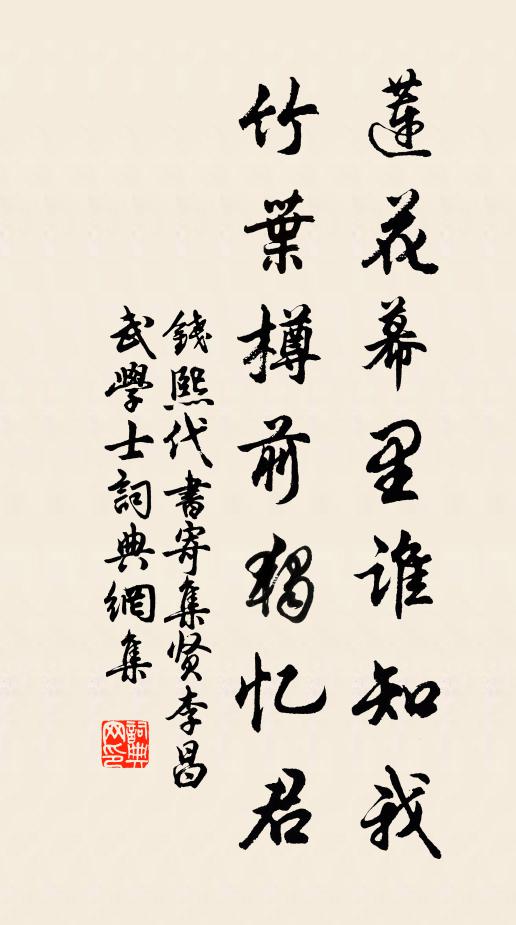 蓮花幕里谁知我
竹葉樽前獨忆君
錢熙代書寄集贤李昌
武學士詞典網集
詞典
网印